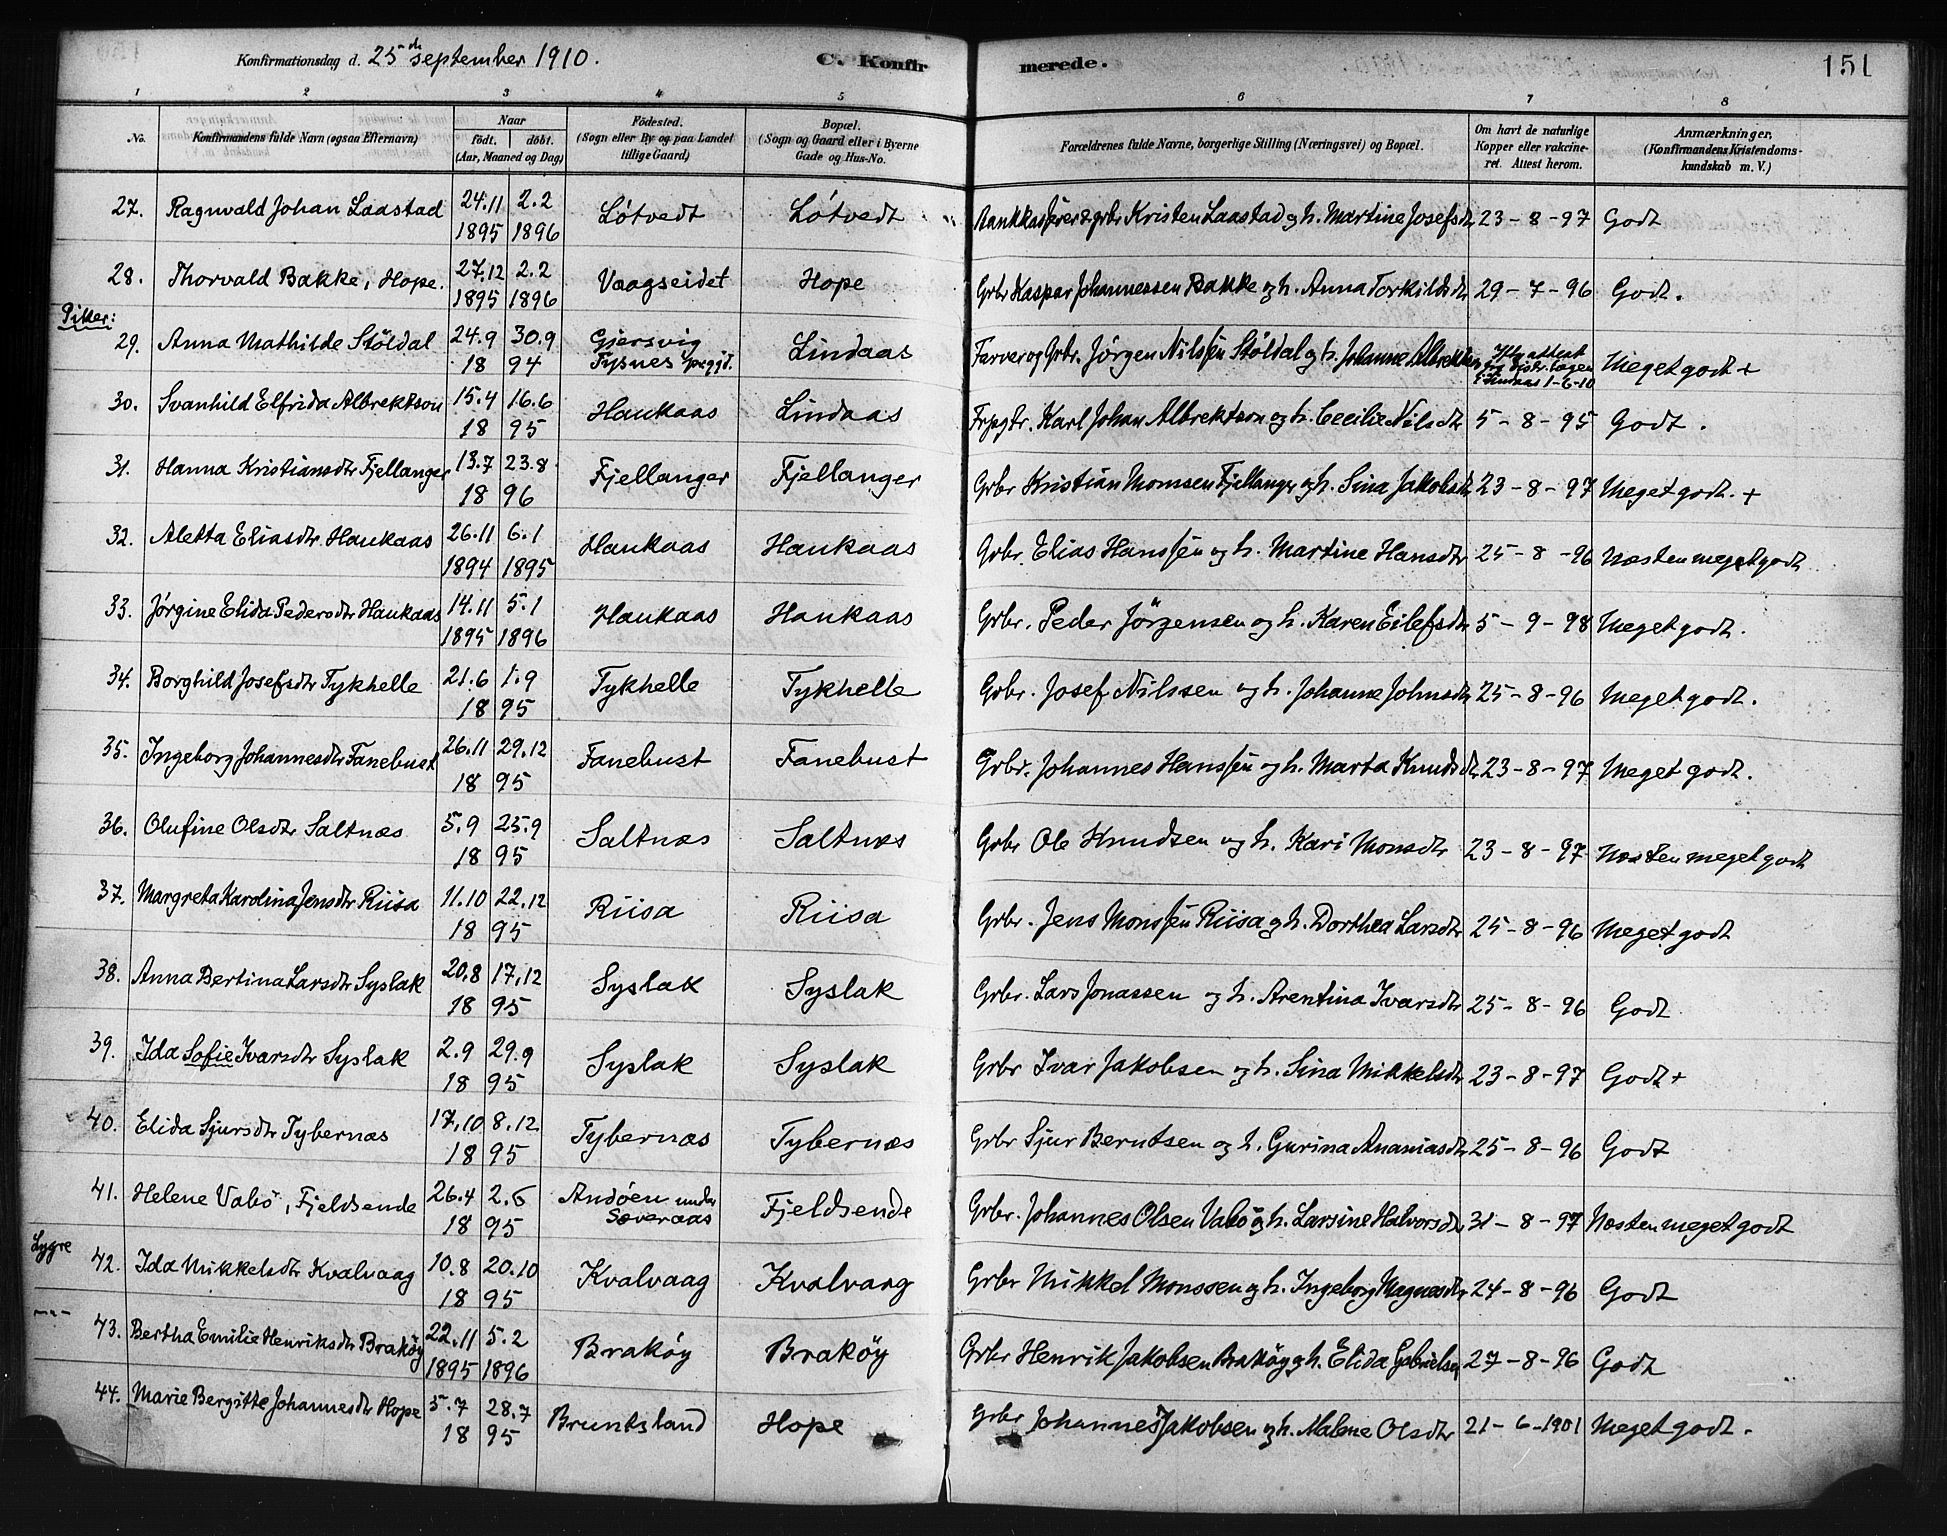 Konfirmationsdag d. 25de september 1910. C. Konfirmerede. 151
1 2 3 4 5 6 7 8
No. Konfirmandens fulde Navn (ogsaa Efternavn) Naar født. døbt. (Aar, Maaned og Dag) Fødested. (Sogn eller By og paa Landet tillige Gaard) Bopæl. (Sogn og Gaard eller i Byerne Gade og Hus-No. Forældrenes fulde Navne, borgerlige Stilling (Næringsvei) og Bopæl. Om havt de naturlige Kopper eller vakcineret. Attest herom. Anmærkninger, (Konfirmandens Kristendomskundskab m. V.)
27. Ragnvald Johan Laastad 24.11 1895 2.2 1896 Løtvedt Løtvedt Kristen Laastad og h. Martine Josefsdtr 23-8-97 Godt
28. Thorvald Bakke, Hope. 27.12 1895 2.2 1896 Vaagseidet Hope Grbr Kaspar Johannessen Bakke og h. Anna Torkildsdtr 29-7-96 Godt.
Piker:
29. Anna Mathilde Støldal 24.9 30.9 18 94 Gjersvig Tysnes prgjd. Lindaas Farver og Grbr. Jørgen Nilssen Støldal og h. Johanne 1-6-10 Meget godt +
30. Svanhild Elfrida Albrektson 15.4 16.6 18 95 Haukaas Lindaas Karl Johan Albrektson og h. Cecilie Nilsdtr 5-8-95 Godt.
31. Hanna Kristiansdtr Fjellanger 13.7 23.8 18 96 Fjellanger Fjellanger Grbr Kristian Monsen Fjellanger og h. Sina Jakobsdtr 23-8-97 Meget godt. +
32. Aletta Eliasdtr Haukaas 26.11 1894 6.1 1895 Haukaas Haukaas Grbr. Elias Hanssen og h. Martine Hansdtr 25-8-96 Næsten meget godt
33. Jørgine Elida Pedersdtr Haukaas 14.11 1895 5.1 1896 Haukaas Haukaas Grbr. Peder Jörgensen og h. Karen Eilefsdtr 5-9-98 Meget godt.
34. Borghild Josefsdtr Tykhelle 21.6 1.9 18 95 Tykhelle Tykhelle Grbr. Josef Nilssen og h. Johanne Johnsdtr 25-8-96 Meget godt.
35. Ingeborg Johannesdtr Fanebust 26.11 29.12 18 95 Fanebust Fanebust Grbr. Johannes Hanssen og h. Marta Knudsdtr 23-8-97 Meget godt.
36. Olufine Olsdtr Saltnæs 5.9 25.9 18 95 Saltnæs Saltnæs Grbr Ole Knudsen og h. Kari Monsdtr 23-8-97 Næsten meget godt
37. Margreta Karolina Jensdtr Riisa 11.10 22.12 18 95 Riisa Riisa Grbr. Jens Monssen Riisa og h. Dorthea Larsdtr 25-8-96 Meget godt
38. Anna Bertina Larsdtr Syslak 20.8 17.12 18 95 Syslak Syslak Grbr. Lars Jonassen og h. Arentina Ivarsdtr 25-8-96 Godt
39. Ida Sofie Ivarsdtr Syslak 2.9 29.9 18 95 Syslak Syslak Grbr Ivar Jakobsen og h. Sina Mikkelsdtr 23-8-97 Godt +
40. Elida Sjursdtr Tybernæs 17.10 8.12 18 95 Tybernæs Tybernæs Grbr Sjur Berntsen og h. Gurina Ananiasdtr 25-8-96 Godt
41. Helene Vabø, Fjeldsende 26.4 2.6 18 95 Andöen under Sæveraas Fjeldsende Grbr. Johannes Olsen Vabø og h. Larsine Halvorsdtr 31-8-97 Næsten meget godt
Lygre
42. Ida Mikkelsdtr Kvalvaag 10.8 20.10 18 95 Kvalvaag Kvalvaag Grbr Mikkel Monssen og h. Ingeborg Magnesdtr 24-8-96 Godt
-"- 43. Bertha Emilie Henriksdtr Brakøy 22.11 1895 5.2 1896 Brakøy Brakøy Grbr Henrik Jakobsen Brakøy og h. Elida Gabrielsen 27-8-96 Godt
44. Marie Bergitte Johannesdtr Hope 5.7 28.7 18 95 Bruntsland Hope Grbr Johannes Jakobsen og h. Malene Olsdtr 21-6-1901 Meget godt.